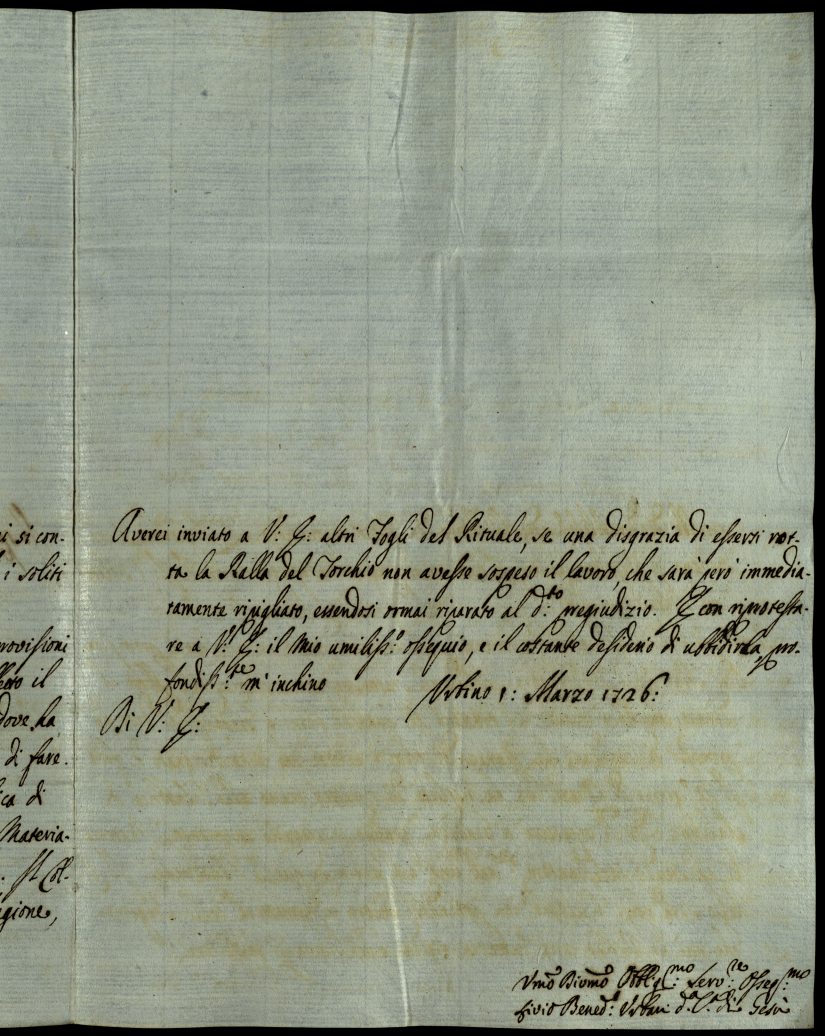 i si con-
i soliti
rovisioni
etto il
dove ha
di fare.
ica di
Materia-
. Il Col-
gione,
Averei inviato a V: E: altri Fogli del Rituale, se una disgrazia di essersi rot-
ta la Ralla del Torchio non avesse sospeso il lavoro, che sarà però immedia-
tamente ripigliato, essendosi ormai riparato al d:to pregiudizio. E con riprotesta-
re a V: E: il mio umiliss:o ossequio, e il costante desiderio di ubbidirla, pro-
fondiss:te m'inchino
Urbino 1: Marzo 1726:
Di V: E:
Umo Divmo Obblig:mo Serv:re Osseq:mo
Livio Bened: Urbani d.a C.a di Gesù